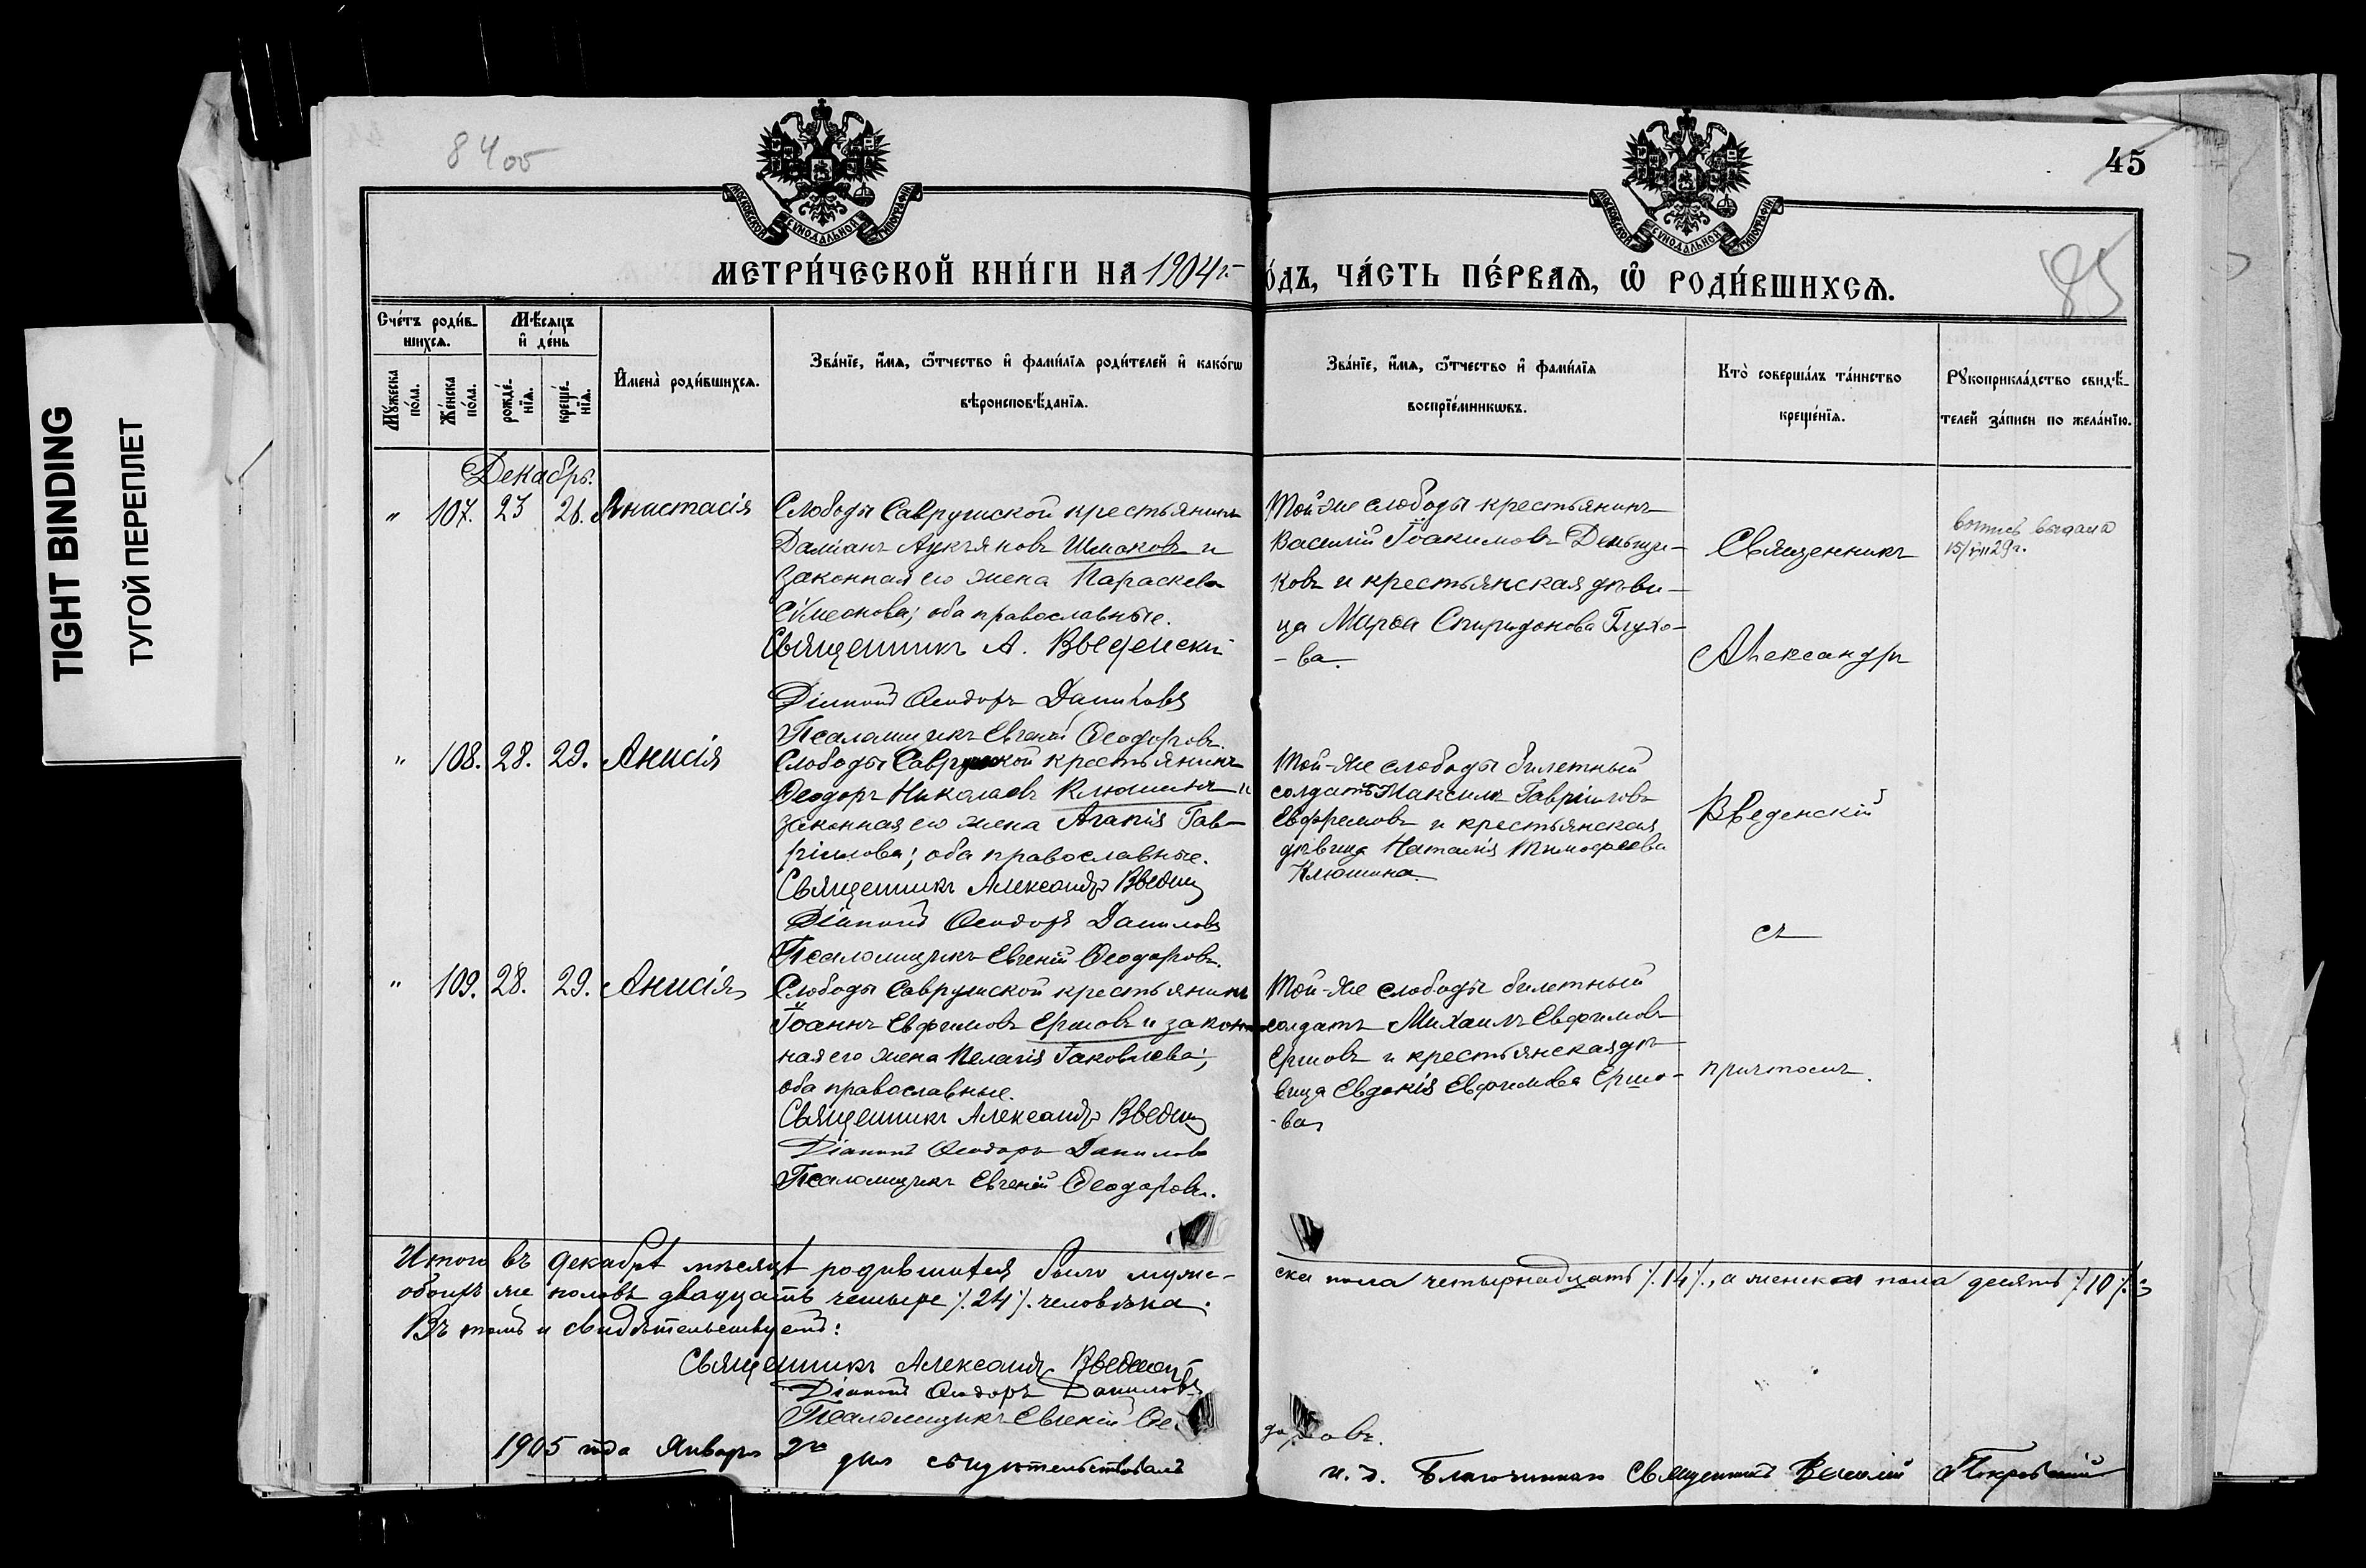 TIGHT BINDING
ТУГОЙ ПЕРЕПЛЕТ
84 об
45
85
МОСКОВСКОЙ СѴНОДАЛЬНОЙ ТИПОГРАФІИ
МОСКОВСКОЙ СѴНОДАЛЬНОЙ ТИПОГРАФІИ
МЕТРИ́ЧЕСКОЙ КНИ́ГИ НА 1904 г. О́ДЪ, ЧА́СТЬ ПЕ́РВАѦ, Ѽ РОДИ́ВШИХСѦ.
Сче́тъ роди́вшихсѧ.
Мꙋ́жеска по́ла.
Же́нска по́ла.
Мѣ́сѧцъ и҆ де́нь
рожде́нїѧ.
креще́нїѧ.
И҆мена̀ роди́вшихсѧ.
Зва́нїе, и҆́мѧ, ѻ҆́тчество и҆ фами́лїѧ роди́телей и҆ како́гѡ
вѣроисповѣ́данїѧ.
Зва́нїе, и҆́мѧ, ѻ҆́тчество и҆ фами́лїѧ
воспрїе́мникѡвъ.
Кто̀ соверша́лъ та́инство
креще́нїѧ.
Рꙋкоприкла́дство свидѣ́-
телей за́писи по жела́нїю.
Декабрь.
" 107. 23 26. Анастасія
Слободы Саврушской крестьянинъ
Даміанъ Лукъяновъ Шмаковъ и
законная его жена Параскева
Сѵмеонова; оба православные.
Священникъ А. Введенскій
Діаконъ Ѳеодоръ Даниловъ
Псаломщикъ Евгеній Ѳеодоровъ.
Той же слободы крестьянинъ
Василій Іоакимовъ Деньщи-
ковъ и крестьянская дѣви-
ца Марѳа Спиридонова Глухо-
-ва.
Священникъ
Александръ
Введенскій
съ
причтомъ.
выпись выдана
15/VIII 29 г.
" 108. 28. 29. Анисія
Слободы Саврушской крестьянинъ
Ѳеодоръ Николаевъ Клюшинъ и
законная его жена Агапія Гав-
ріилова; оба православные.
Священникъ Александръ Введен
Діаконъ Ѳеодоръ Даниловъ
Псаломщикъ Евгеній Ѳеодоровъ.
Той-же слободы билетный
солдатъ Максимъ Гавріиловъ
Евфремовъ и крестьянская
дѣвица Наталія Тимоѳеева
Клюшина.
" 109. 28. 29. Анисія
Слободы Саврушской крестьянинъ
Іоаннъ Евфимовъ Ершовъ и закон
ная его жена Пелагія Іаковлева;
оба православные.
Священникъ Александръ Введен
Діаконъ Ѳеодоръ Даниловъ
Псаломщикъ Евгеній Ѳеодоровъ.
Той-же слободы билетный
солдатъ Михаилъ Евфимовъ
Ершовъ и крестьянская дѣ-
вица Евдокія Евфимова Ершо-
-ва
Итого въ декабрѣ мѣсяцѣ родившихся было муже- ска пола четырнадцать /.14/., а женска пола десять /.10/.;
обоихъ же половъ двадцать четыре /.24/. человѣка.
Въ томъ и свидѣтельствуемъ:
Священникъ Александръ Введенскій
Діаконъ Ѳеодоръ Даниловъ
Псаломщикъ Евгеній Ѳео доровъ.
1905 года Января 2го дня свидѣтельствовалъ и. д. Благочиннаго Священникъ Василій Покровскій